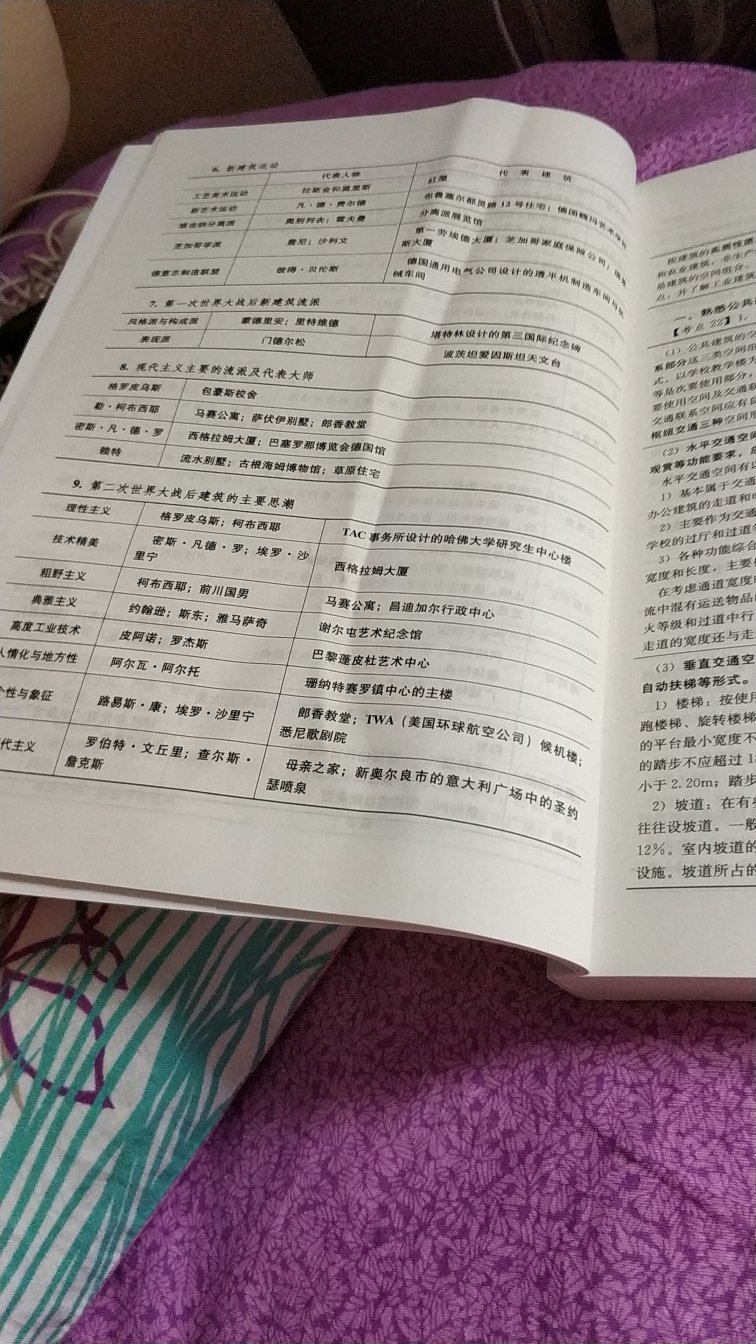 6. 新建筑运动
代表人物 代表建筑
工艺美术运动 拉斯金和莫里斯 红屋
新艺术运动 凡·德·费尔德 布鲁塞尔都灵路12号住宅；德国魏玛艺术学校
维也纳分离派 奥别列去；霍夫曼 分离派展览馆
芝加哥学派 詹尼；沙利文 第一劳埃德大厦；芝加哥家庭保险公司；
斯大厦
德意志制造联盟 彼得·贝伦斯 德国通用电气公司设计的透平机制造车间与机
械车间
7. 第一次世界大战后新建筑流派
风格派与构成派 蒙德里安；里特维德 塔特林设计的第三国际纪念碑
表现派 门德尔松 波茨坦爱因斯坦天文台
8. 现代主义主要的流派及代表大师
格罗皮乌斯 包豪斯校舍
勒·柯布西耶 马赛公寓；萨伏伊别墅；郎香教堂
密斯·凡·德·罗 西格拉姆大厦；巴塞罗那博览会德国馆
赖特 流水别墅；古根海姆博物馆；草原住宅
9. 第二次世界大战后建筑的主要思潮
理性主义 格罗皮乌斯；柯布西耶 TAC事务所设计的哈佛大学研究生中心楼
技术精美 密斯·凡德·罗；埃罗·沙
里宁 西格拉姆大厦
粗野主义 柯布西耶；前川国男 马赛公寓；昌迪加尔行政中心
典雅主义 约翰逊；斯东；雅马萨奇 谢尔屯艺术纪念馆
高度工业技术 皮阿诺；罗杰斯 巴黎蓬皮杜艺术中心
人情化与地方性 阿尔瓦·阿尔托 珊纳特赛罗镇中心的主楼
个性与象征 路易斯·康；埃罗·沙里宁 郎香教堂；TWA（美国环球航空公司）候机楼；
悉尼歌剧院
代主义 罗伯特·文丘里；查尔斯·
詹克斯 母亲之家；新奥尔良市的意大利广场中的圣约
瑟喷泉
按建筑的实质性质
和农业建筑，非生产
是建筑的空间组合。
点，并了解工业建筑
一、熟悉公共
【考点22】1.
（1）公共建筑的空
系部分这三类空间组
式。以学校教学楼为
等是次要使用部分；
要使用空间及交通联
交通联系空间应有
枢纽交通三种空间形
（2）水平交通空间
观赏等功能要求，
水平交通空间有以
1）基本属于交通
办公建筑的走道和
2）主要作为交通
学校的过厅和过道等
3）各种功能综合
宽度和长度，主要
在考虑通道宽度
流中混有运送物品
火等级和过道中行
走道的宽度还与走
（3）垂直交通空
自动扶梯等形式。
1）楼梯：按使用
跑楼梯、旋转楼梯
的平台最小宽度不
的踏步不应超过1
小于2.20m；踏步
2）坡道：在有些
往往设坡道。一般
12%。室内坡道的
设施。坡道所占的